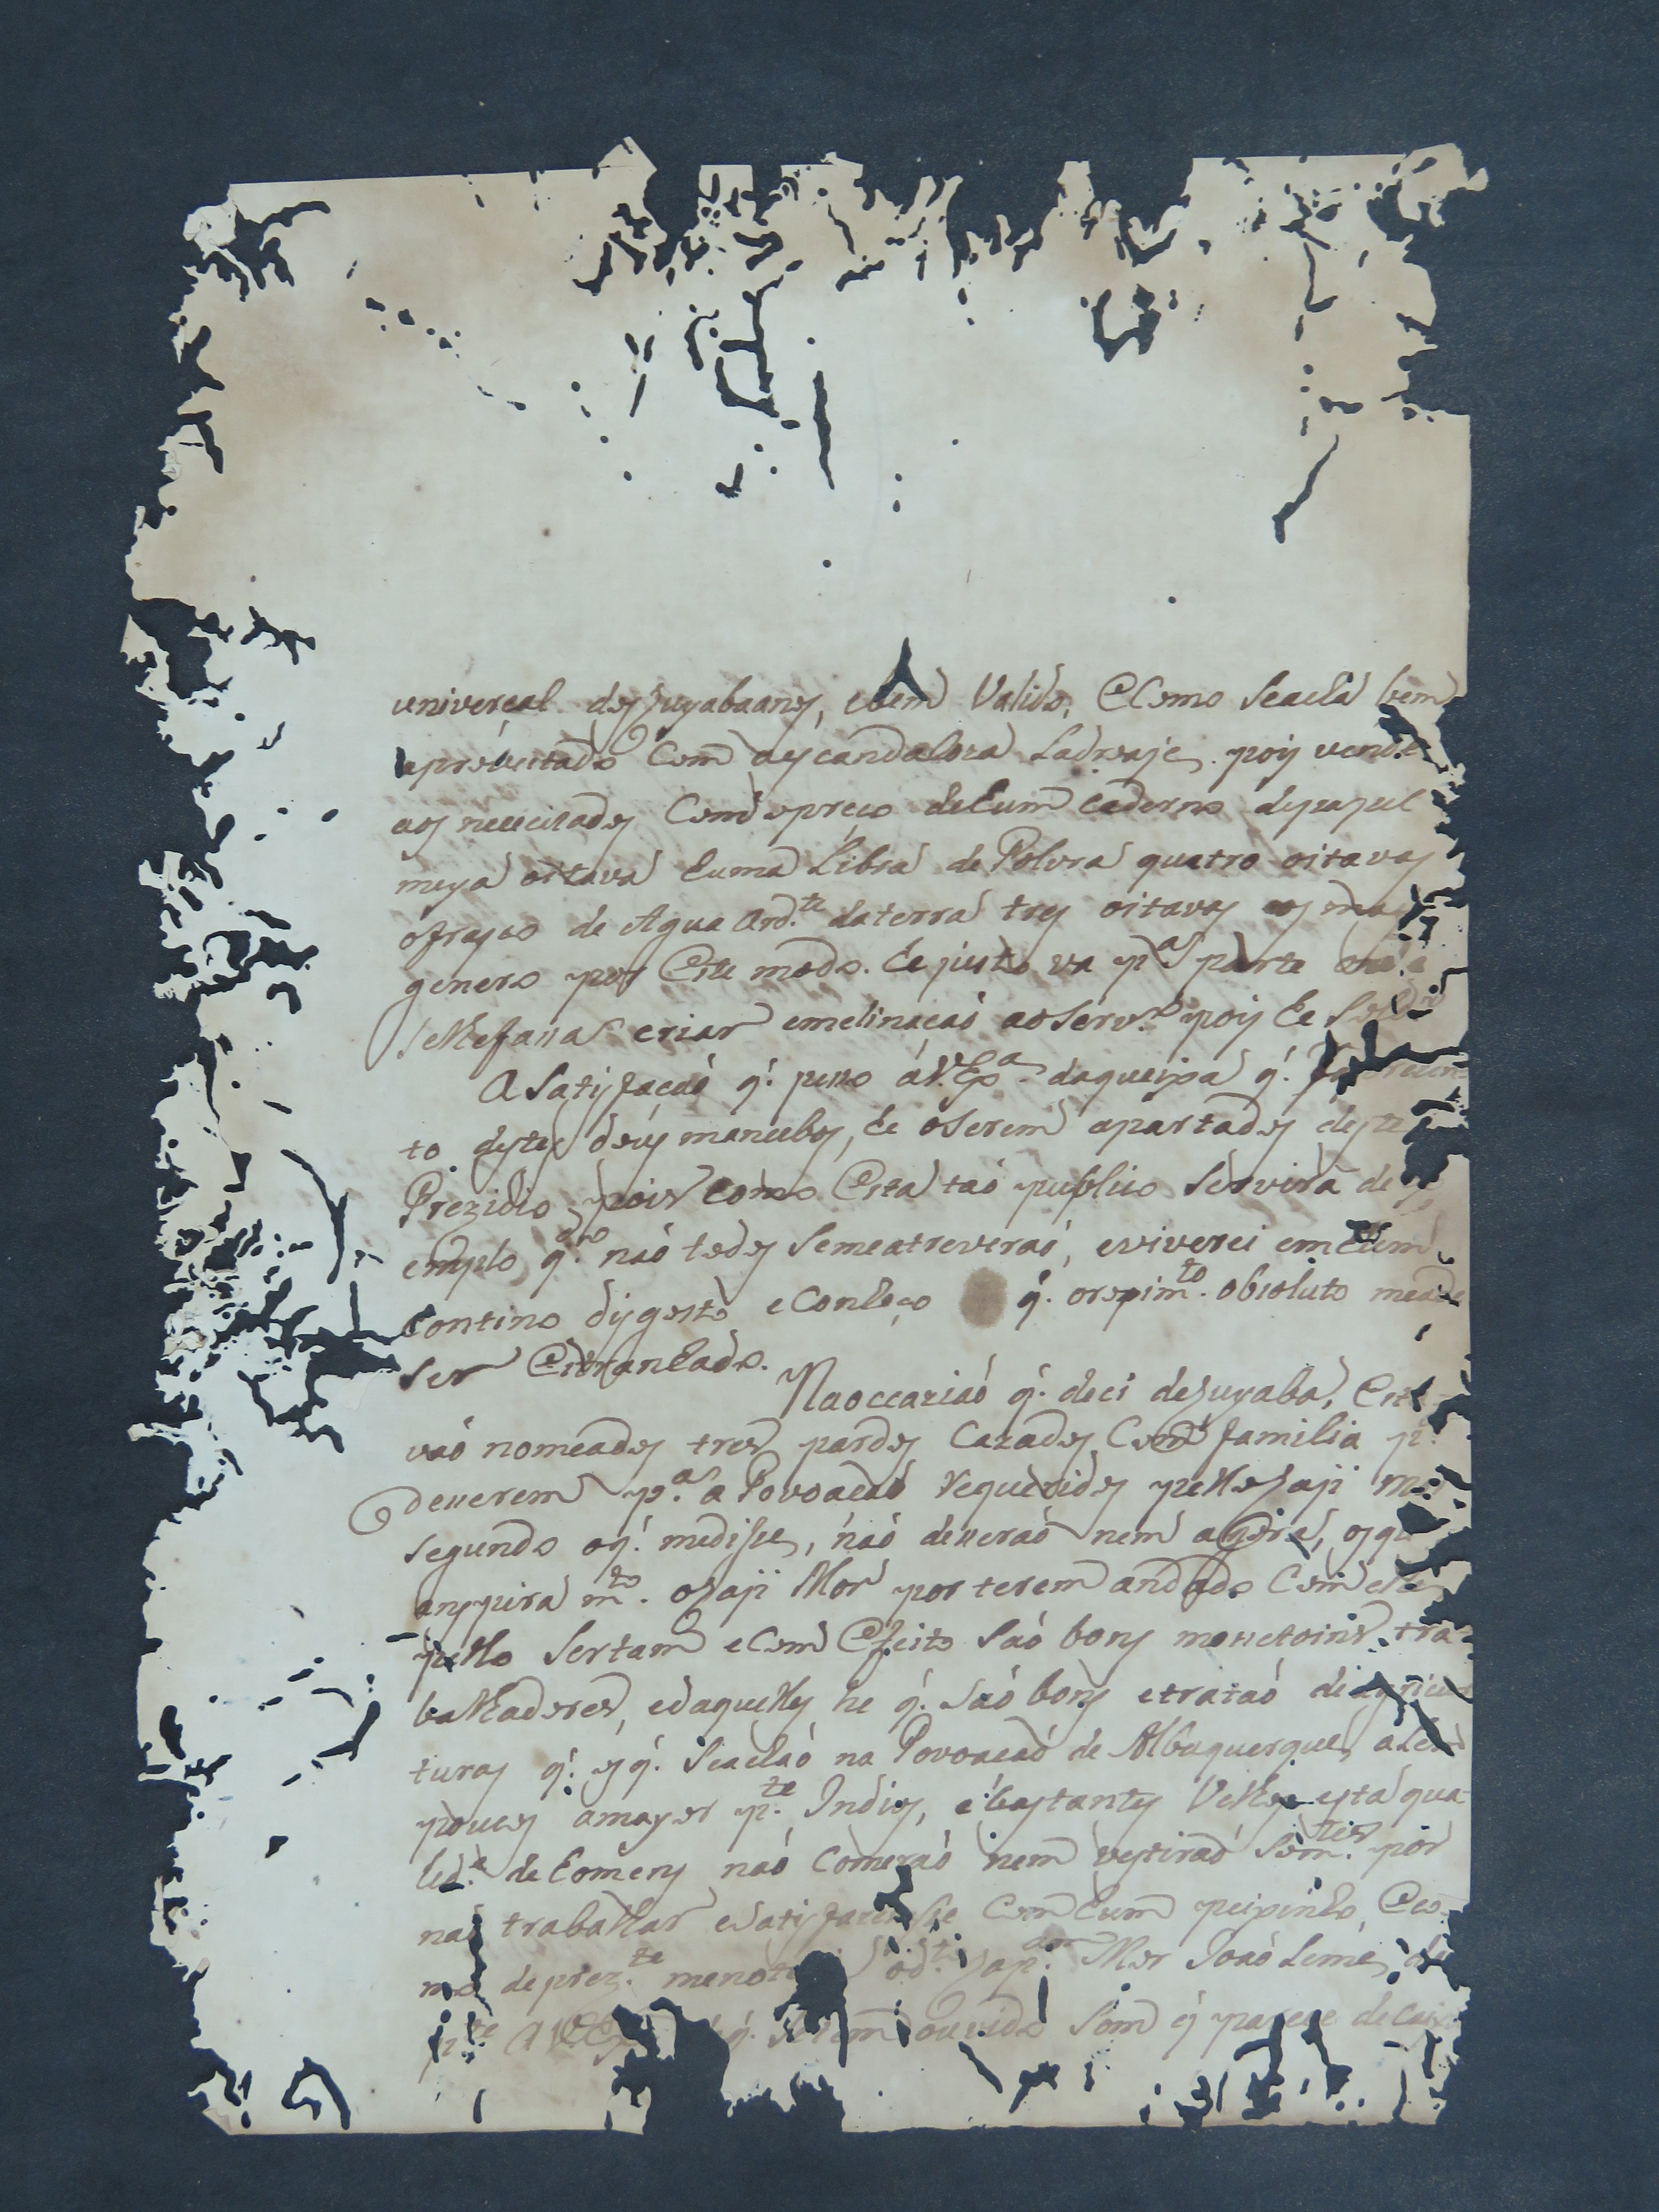 univerçal dos Cuyabaanos, e bem Valido, e Como Seacha bem
aproveitado Com aescandaloza Ladroaje, pois vende
aos necicitados Com o preco dehum caderno depapel
meya oitava huma Libra de Polvra quatro oitavas
ofrasco de Agua Ard.te daterra tres oitavas os mais
genero por Este modo. he justo va p.a parte
Refaria criar emclinacaó aoserv.o pois he
A Satisfacaó q.' peco áV.Ex.a daqueixa q.'
to destes dous mancebos, he oSerem apartados deste
Prezidio, pois como Esta taó publico Servirà de
emplo q.do naó todos Semeatreveraó, eviverei emhum
contino disgosto, eConheço q.' orepim.to obsoluto meade
ser Estranhado.
Naoccaziaó q.' deci deCuyaba, Esta
vaó nomeados tres pardos Cazados Com familia p.a
decerem p.a a Povoacaó Requeridos pelloCapi Mor
segundo oq.' medisse, naó deceraó nem agora, osque
anspira m.to oCapi Mor por terem andado Com elle
pello Sertam eCom Efeito Saó bons monetoins, tra-
balhadores, edaquelles he q.' Saó bons etrataó de agricul
turas q.' os q.' Seachaó na Povoacaó de Albuquerque, alem
poucos amayor p.te Indios, ebastantes Velhos, esta qua-
lid.e de homens naó Comeraó nem vestiraó Som.te por
naó trabalhar eSatisfacemsse Com hum peixinho, Eco-
mo deprez.te od.o Cap.am Mor Joaó Leme,
p.te AVEx.a q.' Setem ouvido Som q' parece de Caixa